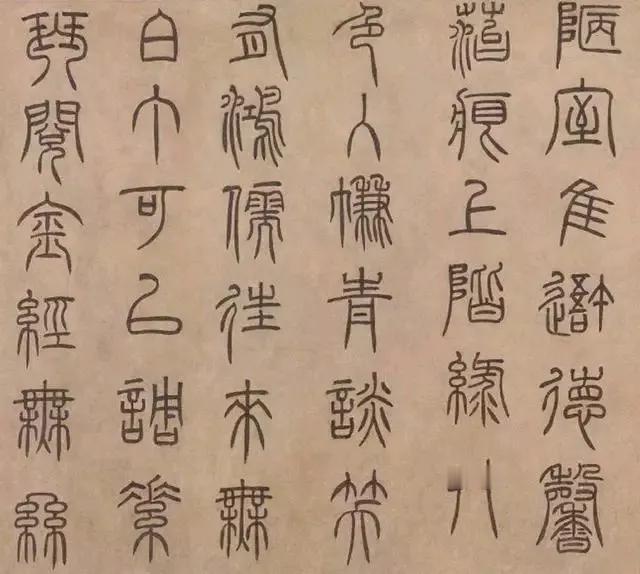 陋室隹吾德馨
菭痕上階綠
色入㡘青談笑
有鴻儒往來無
白丁可以調素
琴閱金經無絲